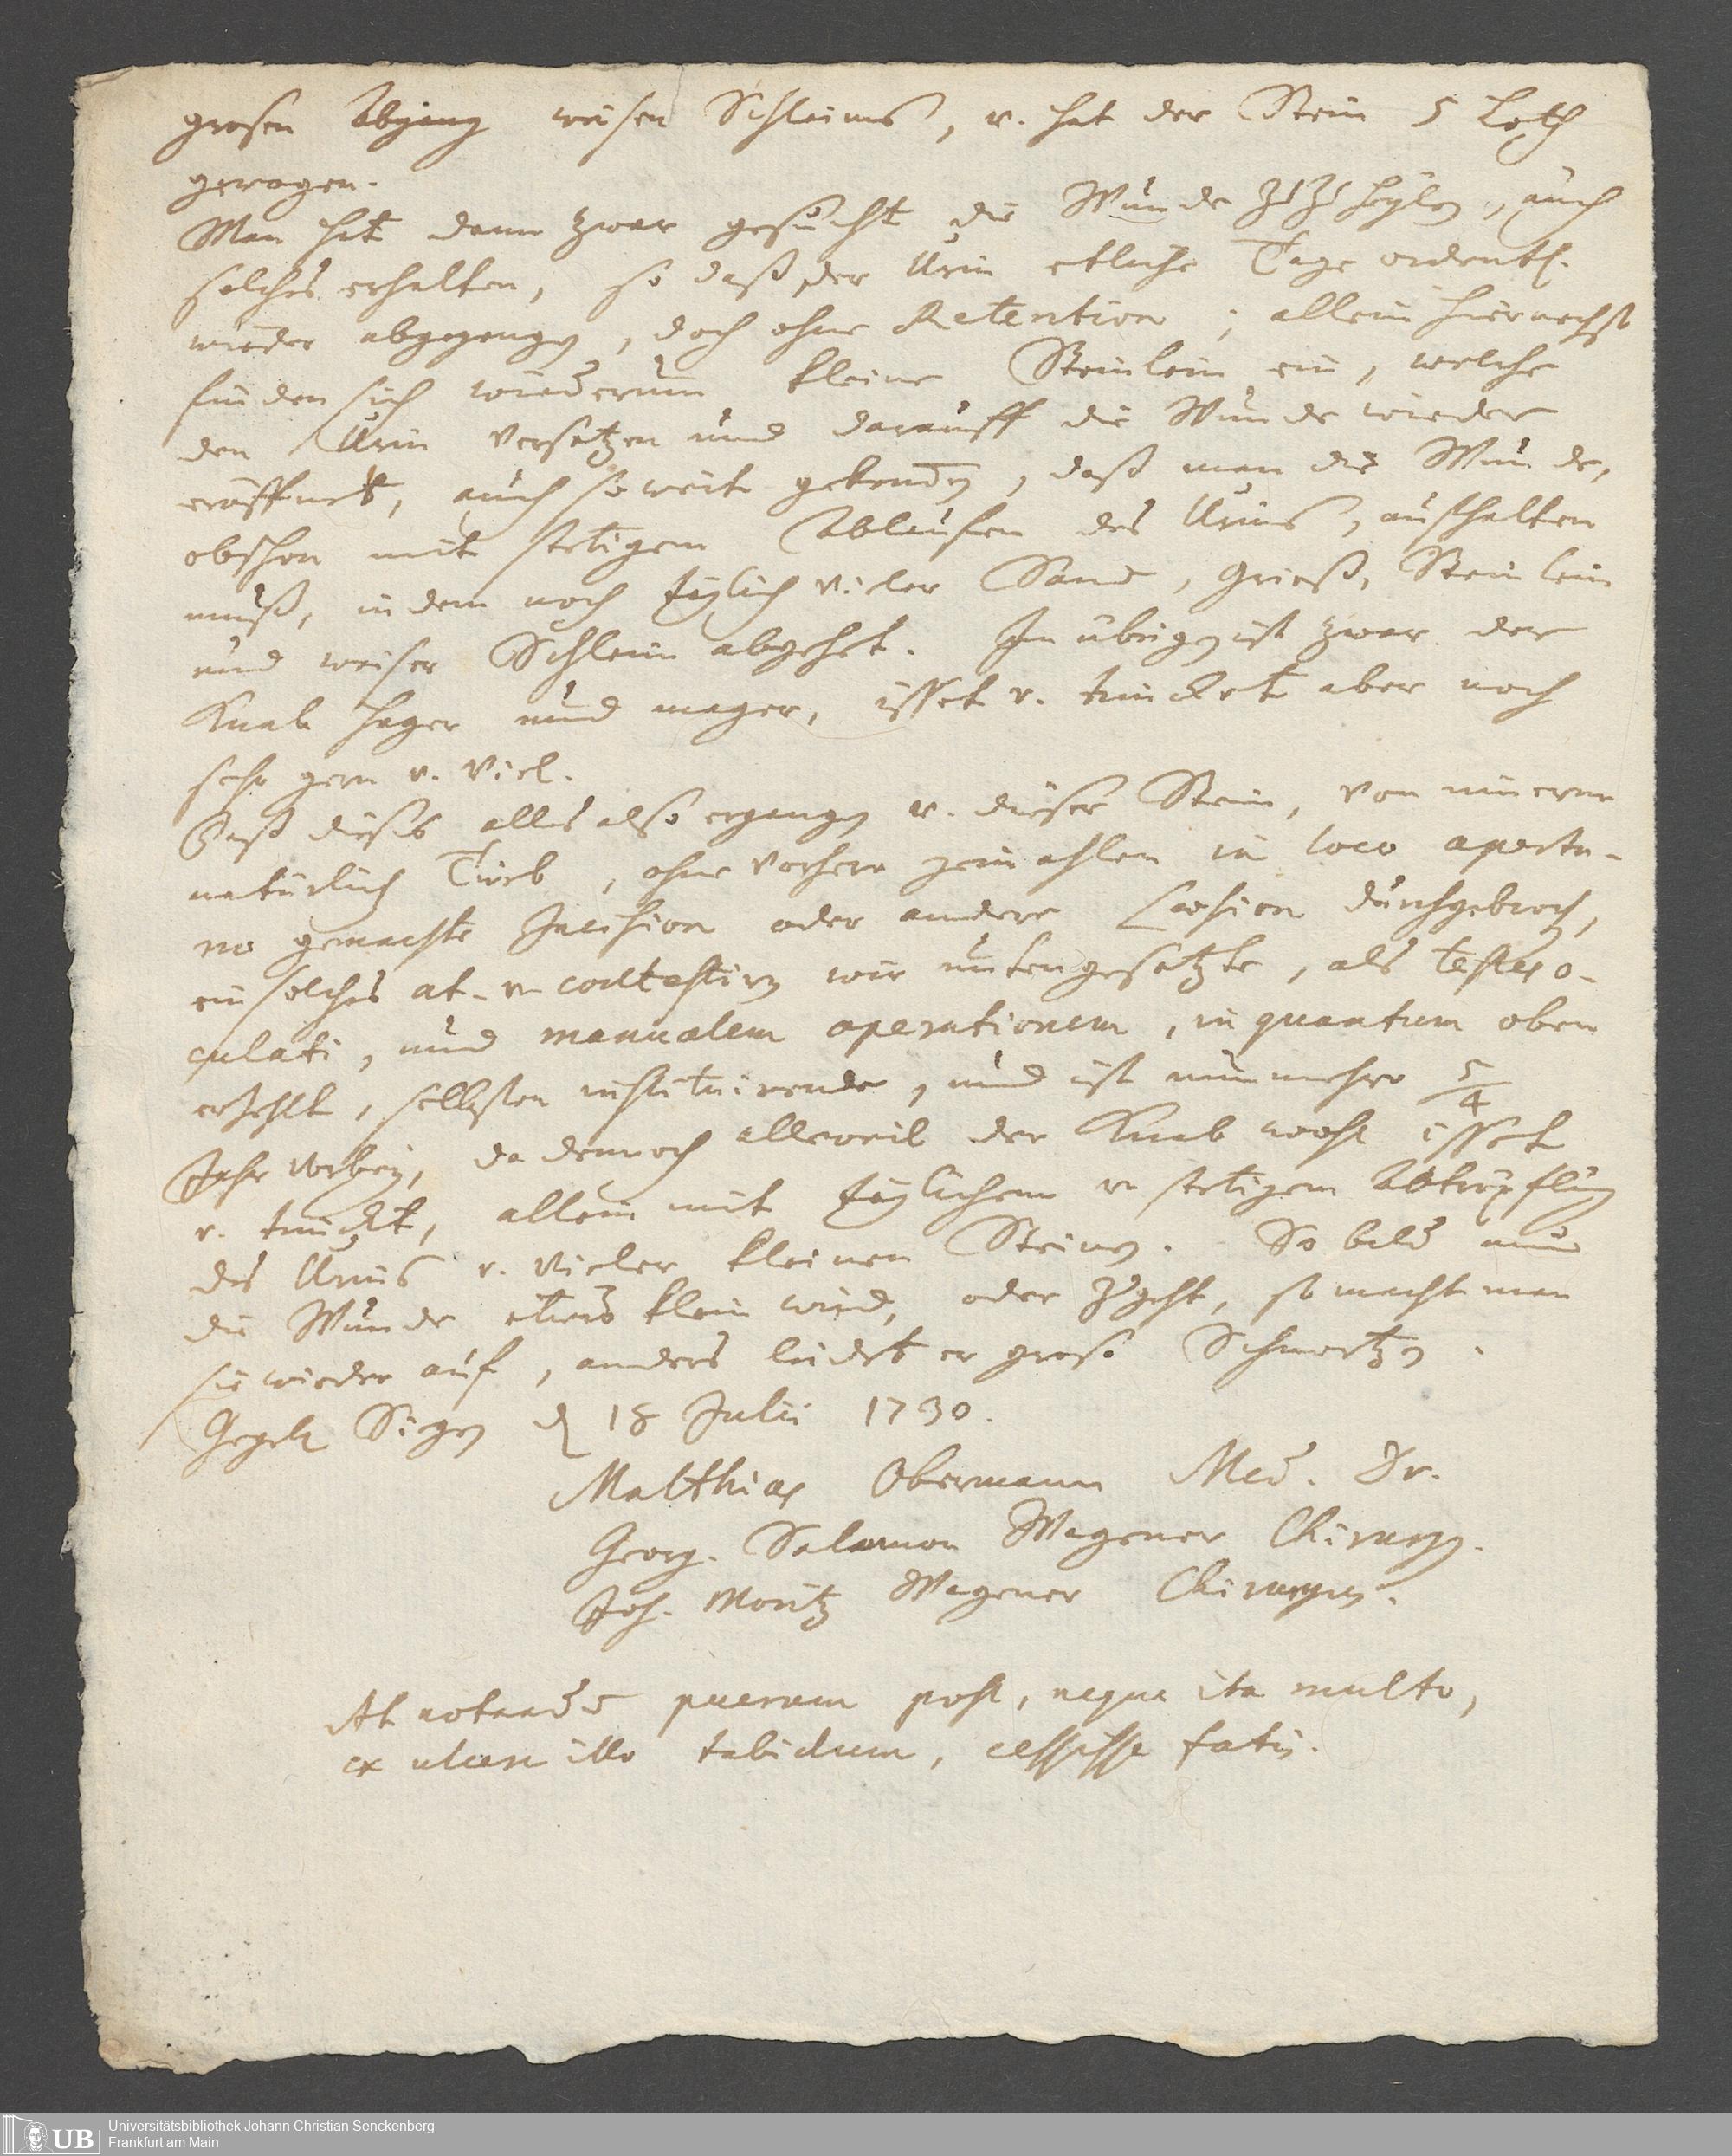 grosen Abgang weisen Schleims, v. hat der Stein 5 Loth
gewogen.
Man hat dann zwar gesucht die Wunde zuzuheylen, auch
solches erhalten, so daß der Urin etliche Tage ordentl.
wieder abgegangen, doch ohne Retention; allein hiernechst
finden sich wiederum kleine Steinlein ein, welche
den Urin versetzen und darauff die Wunde wieder
eröffnet, auch so weit, daß man die Wunde,
obschon mit stetigem Ablaufen des Urins, aufhalten
muß, in dem noch täglich vieler Sand, Grieß, Steinlein
und weiser Schleim abgehet. Im übrigen ist zwar der
Knab hager und mager, isset v. trincket aber noch
sehr gern v. viel.
Daß dieses alles also ergangen v. dieser Stein, von
natürlich Trieb, ohne vorhero zumahlen in loco apertu-
ro gemachte Incision oder andere Laesion durchgebroch,
ein solches at- v. contestiren wir untengesetzte, als testes o-
culati, und manualem operationem, in quantum oben
erzehlt, selbsten instituirende, und ist nunmehro 5/4
Jahr vorbey, da dennoch alleweil der Knab wohl isset
v. trinckt, allein mit täglichem v. stetigem Abtröpflung
des Urins v. vieler kleinen Steinen. So bald nun
die Wunde etwas klein wird, oder zugeht, so macht man
sie wieder auf, anders leidet er grose Schmertzen.
Gegeben Sigen d 18 Julii 1730.
Matthias Obermann Med. Dr.
Georg. Salamon Wagener Chirurg.
Joh. Moritz Wagener Chirurgus.
At notandum puerum post, neque ita multo,
ex ulcere illo tabidum, cessisse fatis.
UB Universitätsbibliothek Johann Christian Senckenberg
Frankfurt am Main